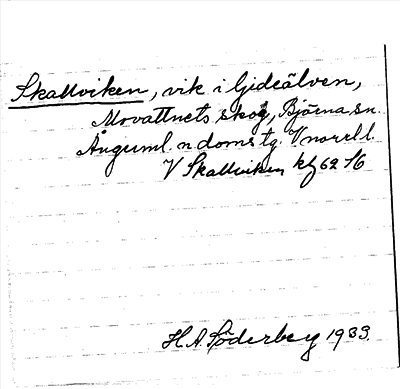 Skallviken, vik i Gideälven,
Movattnets skog, Björna sn.
Ångerml. n domstg. Vnorrl l.
V Skallviken kbl 62 16
H. A. Söderberg 1933.